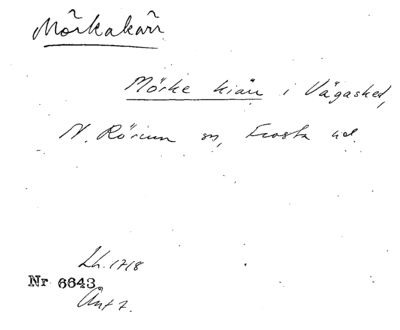 Mörkakärr
Mörke kiärr i Vägasked,
N. Rörum sn, Frosta hd.
Lh. 1718
Nr 6643.
Akt 7.